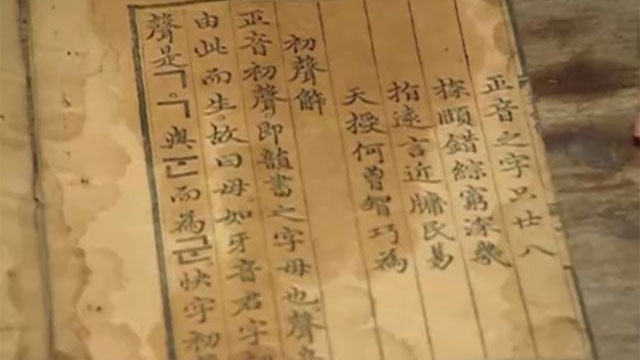 正音之字只廿八
探賾錯綜窮深幾
指遠言近牖民易
天授何曾智巧為
初聲解
正音初聲。即韻書之字母也。聲
由此而生。故曰母。如牙音君字初
聲是ㄱ。ㄱ與ᅟᅮᆫ而為군。快字初